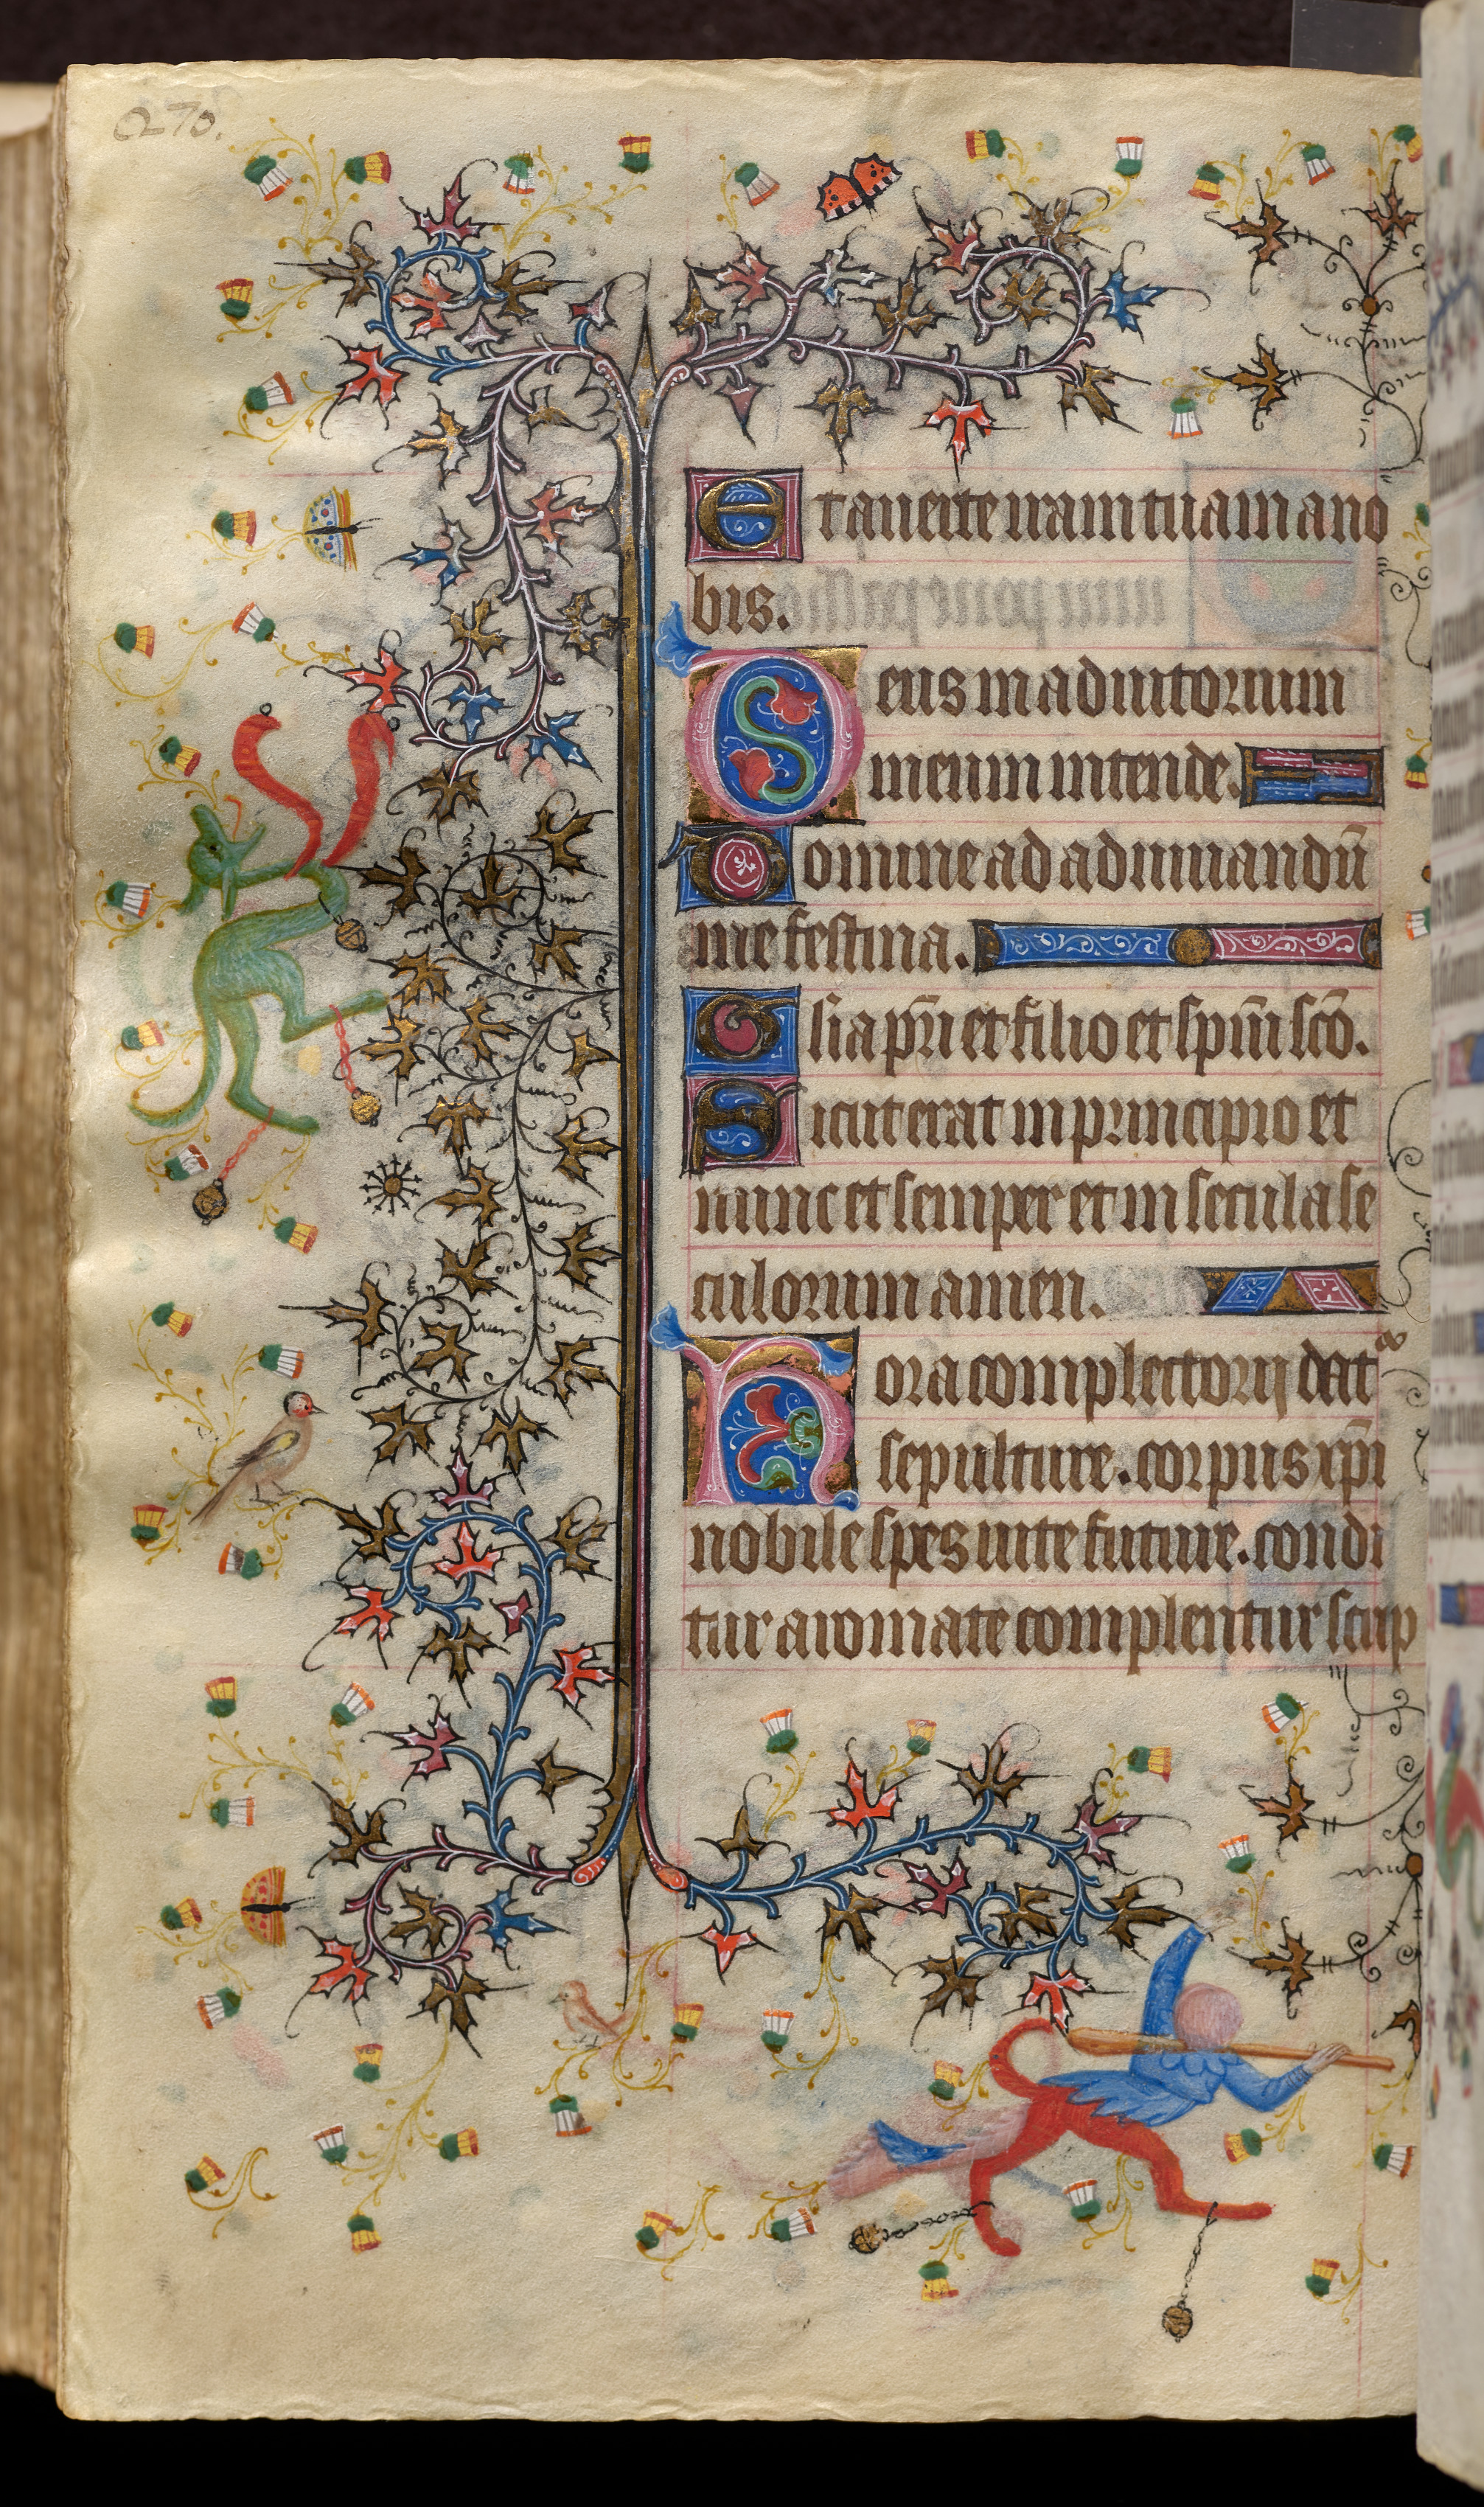 270.
Et auerte iram tuam a no
bis.
Deus in adiutorium
meum intende.
Domine ad adiuuandū
me festina.
Glia pr̄i et filio et spūi scō.
Sicut erat in principio et
nunc et semper et in secula se
culorum amen.
Hora completorij dat᷑
sepulture. corpus xp̄i
nobile spes uite future. condi
tur aromate complentur scrip